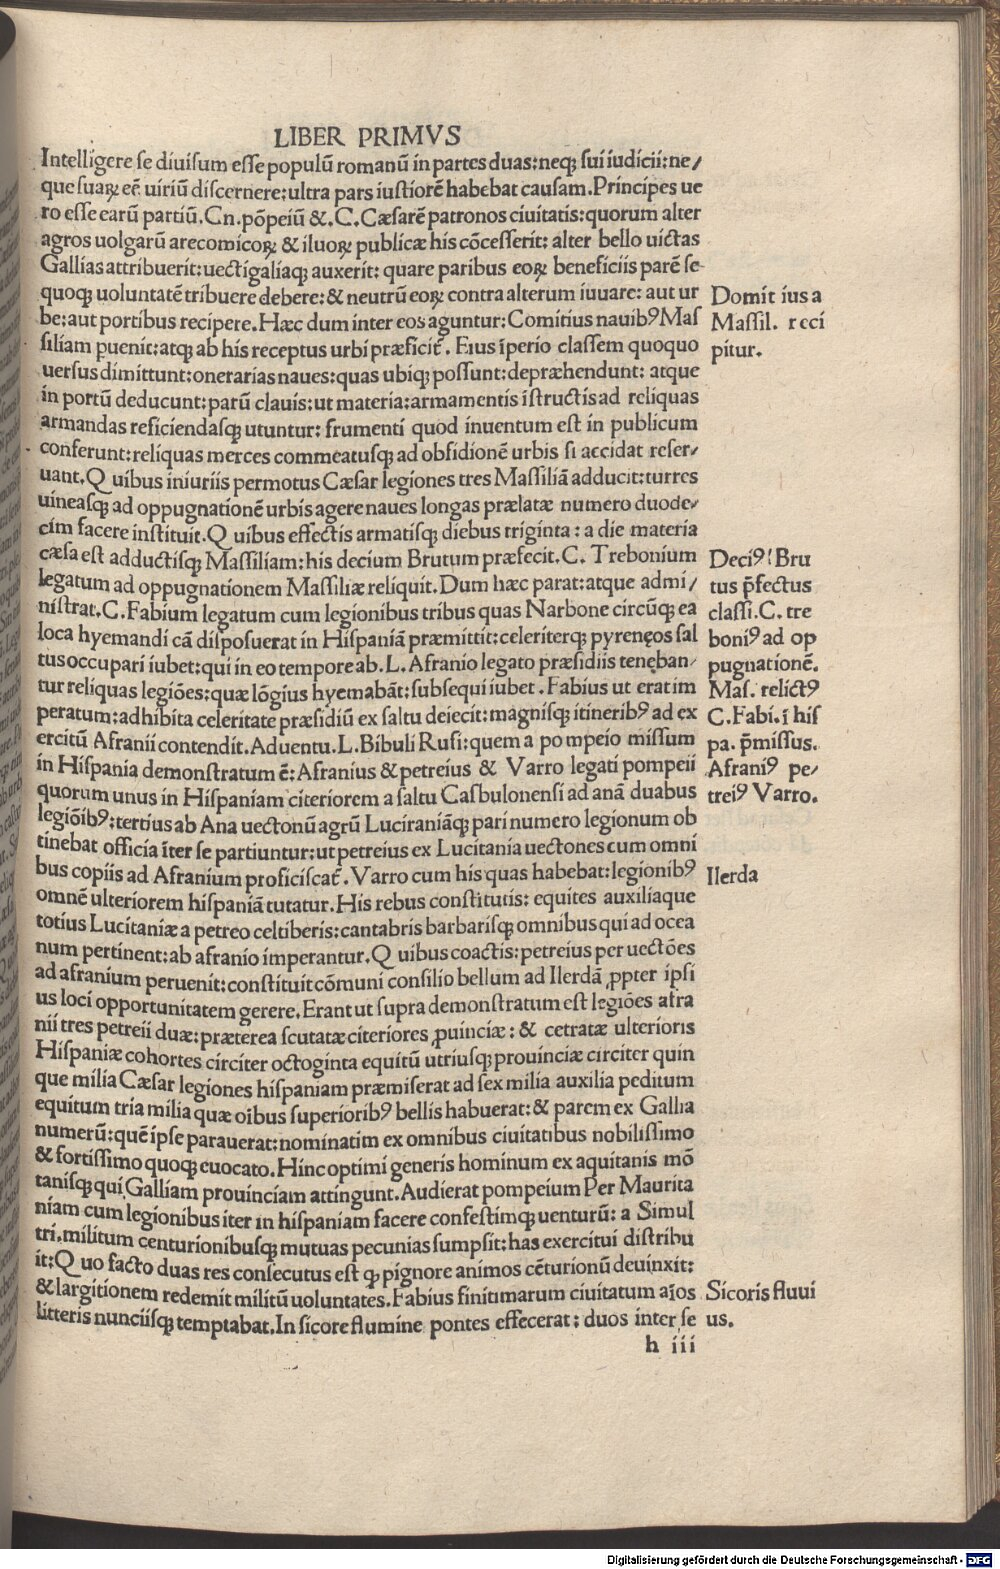 LIBER PRIMVS
Intelligere se diuisum esse populū romanū in partes duas: neq; sui iudicii: ne/
que suaꝝ eē uiriū discernere: ultra pars iustiorē habebat causam. Principes ue
ro esse earū partiū. Cn. pōpeiū &. C. Cæsarē patronos ciuitatis: quorum alter
agros uolgarū arecomicoꝝ & iluoꝝ publicæ his cōcesserit: alter bello uictas
Gallias attribuerit: uectigaliaq; auxerit: quare paribus eoꝝ beneficiis parē se-
quoq; uoluntatē tribuere debere: & neutrū eoꝝ contra alterum iuuare: aut ur
be: aut portibus recipere. Hæc dum inter eos aguntur: Comitius nauibꝰ Mas
siliam puenit: atq; ab his receptus urbi præficit̄. Eius īperio classem quoquo
uersus dimittunt: onerarias naues: quas ubiq; possunt: depræhendunt: atque
in portū deducunt: parū clauis: ut materia: armamentis īstructis ad reliquas
armandas reficiendasq; utuntur: frumenti quod inuentum est in publicum
conferunt: reliquas merces commeatusq; ad obsidionē urbis si accidat reser/
uant. Q uibus iniuriis permotus Cæsar legiones tres Massiliā adducit: turres
uineasq; ad oppugnationē urbis agere naues longas prælatæ numero duode/
cim facere instituit. Q uibus effectis armatisq; diebus triginta: a die materia
cæsa est adductisq; Massiliam: his decium Brutum præfecit. C. Trebonium
legatum ad oppugnationem Massiliæ reliquit. Dum hæc parat: atque admi/
nistrat. C. Fabium legatum cum legionibus tribus quas Narbone circūq; ea
loca hyemandi cā disposuerat in Hispaniā præmittit: celeriterq; pyrenęos sal
tus occupari iubet: qui in eo tempore ab. L. Afranio legato præsidiis tenęban/
tur reliquas legiōes: quæ lōgius hyemabāt: subsequi iubet. Fabius ut erat im
peratum: adhibita celeritate præsidiū ex saltu deiecit: magnisq; itineribꝰ ad ex
ercitū Afranii contendit. Aduentu. L. Bibuli Rufi: quem a pompeio missum
in Hispania demonstratum ē: Afranius & petreius & Varro legati pompeii
quorum unus in Hispaniam citeriorem a saltu Casbulonensi ad anā duabus
legiōibꝰ: tertius ab Ana uectonū agrū Luciraniāq; pari numero legionum ob
tinebat officia īter se partiuntur: ut petreius ex Lucitania uectones cum omni
bus copiis ad Afranium proficiscat̄. Varro cum his quas habebat: legionibꝰ
omnē ulteriorem hispaniā tutatur. His rebus constitutis: equites auxiliaque
totius Lucitaniæ a petreo celtiberis: cantabris barbarisq; omnibus qui ad ocea
num pertinent: ab afranio imperantur. Q uibus coactis: petreius per uectōes
ad afranium peruenit: constituit cōmuni consilio bellum ad Ilerdā ꝓpter ipsi
us loci opportunitatem gerere. Erant ut supra demonstratum est legiōes afra
nii tres petreii duæ: præterea scutatæ citeriores ꝓuinciæ: & cetratæ ulterioris
Hispaniæ cohortes circiter octoginta equitū utriusq; prouinciæ circiter quin
que milia Cæsar legiones hispaniam præmiserat ad sex milia auxilia peditum
equitum tria milia quæ oibus superioribꝰ bellis habuerat: & parem ex Gallia
numerū: quē ipse parauerat: nominatim ex omnibus ciuitatibus nobilissimo
& fortissimo quoq; euocato. Hinc optimi generis hominum ex aquitanis mō
tanisq; qui Galliam prouinciam attingunt. Audierat pompeium Per Maurita
niam cum legionibus iter in hispaniam facere confestimq; uenturū: a Simul
tri. militum centurionibusq; mutuas pecunias sumpsit: has exercitui distribu
it: Q uo facto duas res consecutus est q; pignore animos cēturionū deuinxit:
& largitionem redemit militū uoluntates. Fabius finitimarum ciuitatum aīos
litteris nunciisq; temptabat. In sicore flumine pontes effecerat: duos inter se
h iii
Domit ius a
Massil. reci
pitur.
Deciꝰ! Bru
tus p̄fectus
classi. C. tre
boniꝰ ad op
pugnationē.
Mas. relictꝰ
C. Fabi. ī his
pa. p̄missus.
Afraniꝰ pe/
treiꝰ Varro.
Ilerda
Sicoris fluui
us.
Digitalisierung gefördert durch die Deutsche Forschungsgemeinschaft - DFG